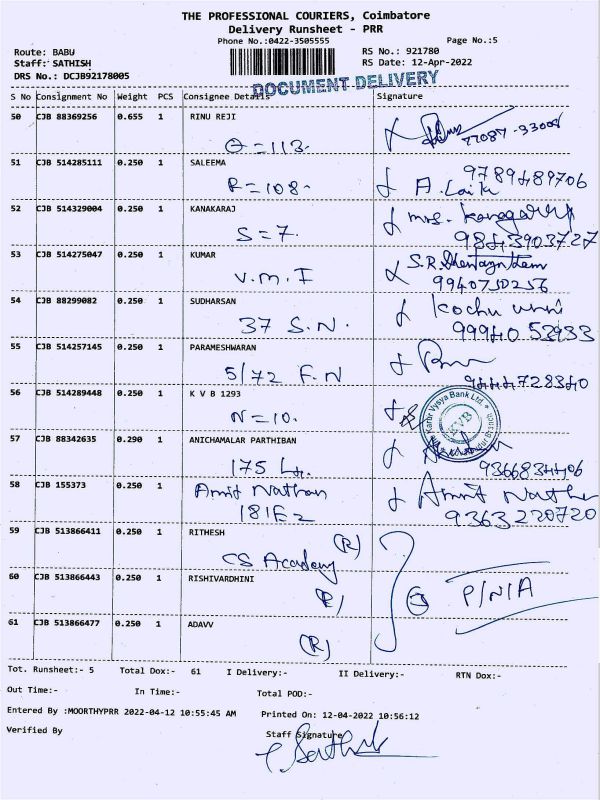 THE PROFESSIONAL COURIERS, Coimbatore
Delivery Runsheet - PRR
Phone No.:0422-3505555
Page No.:5
Route: BABU
Staff: SATHISH
DRS No.: DCJB92178005
RS No.: 921780
RS Date: 12-Apr-2022
DOCUMENT DELIVERY
S No Consignment No Weight PCS Consignee Details Signature
50 CJB 88369256 0.655 1 RINU REJI
77087-33008
51 CJB 514285111 0.250 1 SALEEMA
R=108- 9789489706
52 CJB 514329004 0.250 1 KANAKARAJ
S=7. 9843903727
53 CJB 514275047 0.250 1 KUMAR
V.M.I 9940750256
54 CJB 88299082 0.250 1 SUDHARSAN
37 S.N. 99940 53933
55 CJB 514257145 0.250 1 PARAMESHWARAN
5/72 F.N 9444728340
56 CJB 514289448 0.250 1 K V B 1293
N=10. Karur Vysya Bank Ltd. KVB
57 CJB 88342635 0.290 1 ANICHAMALAR PARTHIBAN
175 9366834406
58 CJB 155373 0.250 1 Amit Nathan Amit Nathan
181E2 9363220720
59 CJB 513866411 0.250 1 RITHESH
CS Academy (R)
60 CJB 513866443 0.250 1 RISHIVARDHINI
(R) P/N/A
61 CJB 513866477 0.250 1 ADAVV
(R)
Tot. Runsheet:- 5 Total Dox:- 61 I Delivery:- II Delivery:- RTN Dox:-
Out Time:- In Time:- Total POD:-
Entered By :MOORTHYPRR 2022-04-12 10:55:45 AM Printed On: 12-04-2022 10:56:12
Verified By Staff Signature